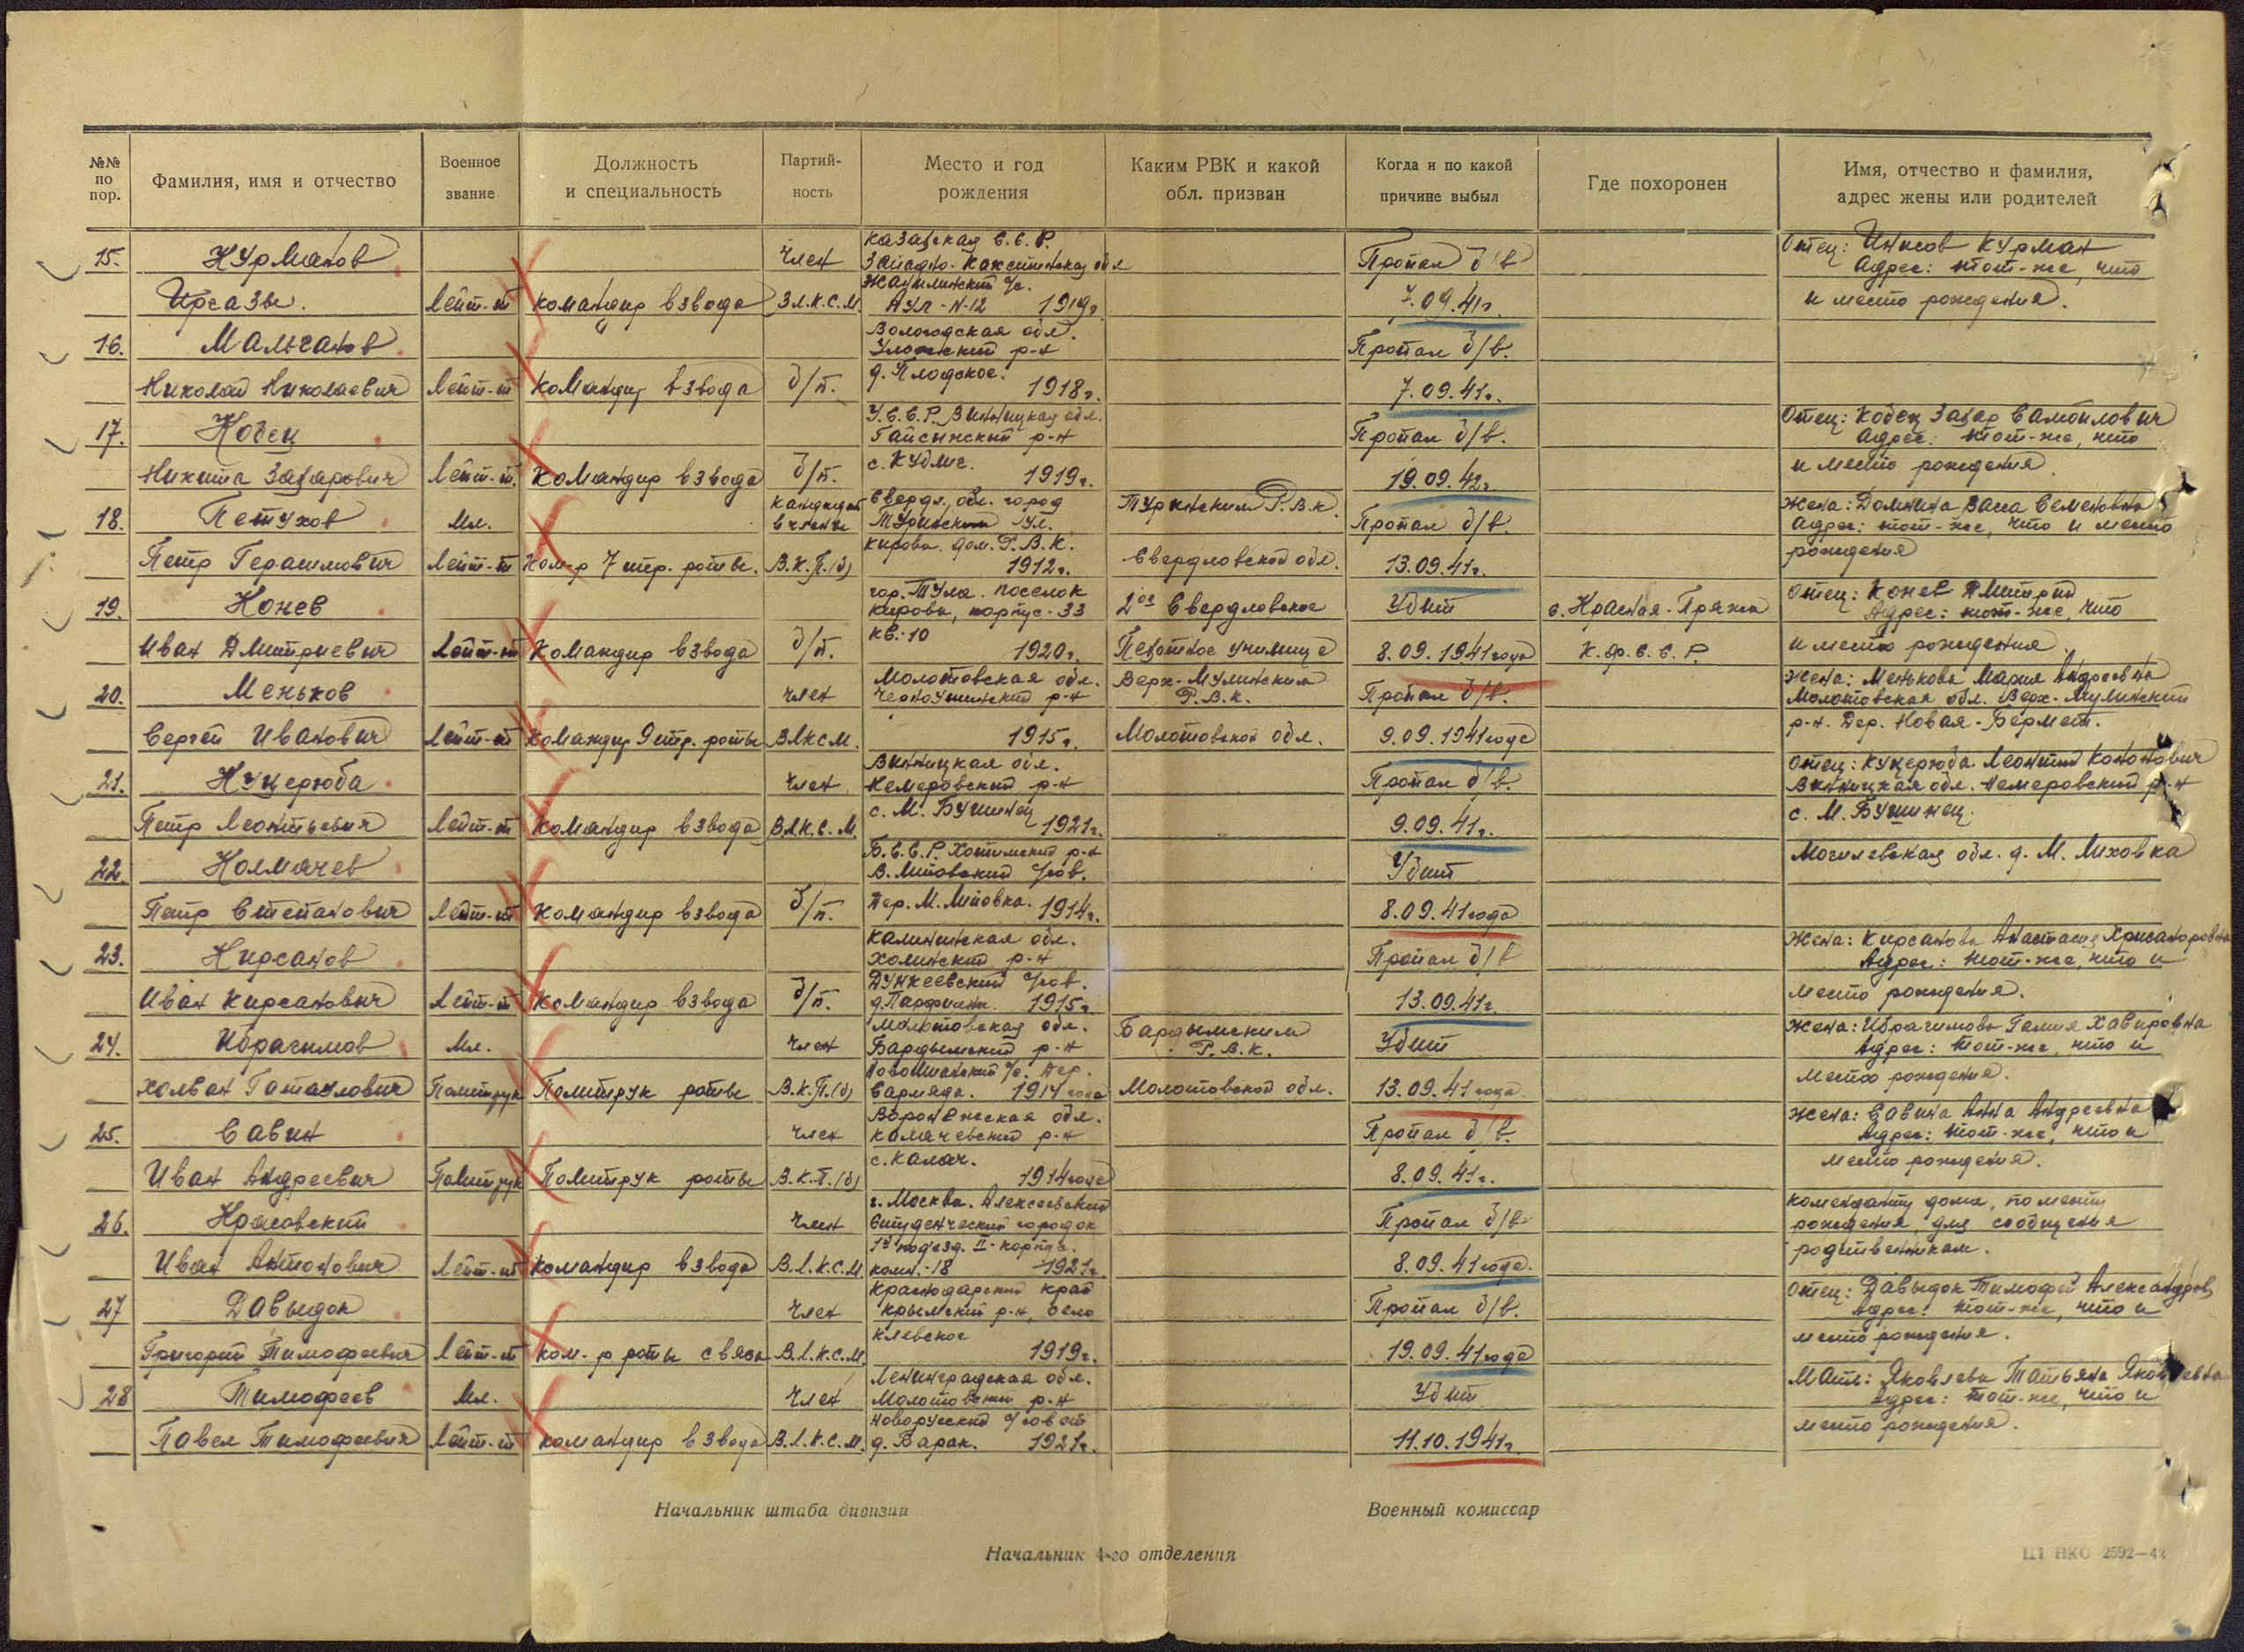 №№ по пор.
Фамилия, имя и отчество
Военное звание
Должность и специальность
Партий-ность
Место и год рождения
Каким РВК и какой обл. призван
Когда и по какой причине выбыл
Где похоронен
Имя, отчество и фамилия, адрес жены или родителей
15. Курманов член Казахская С.С.Р. Пропал б/в Отец: Курман
Адрес: тот-же, что
Лейт-т командир взвода В.Л.К.С.М. Аул-N-12 1919г. 7.09.41г. и место рождения.
16. Вологодская обл. р-н Пропал б/в.
Николай Николаевич Лейт-т Командир взвода б/п. 1918г. 7.09.41г.
17. Кобец У.С.С.Р. Винницкая обл. Гайсинский р-н Пропал б/в. Отец: Кобец Захар Самойлович
Адрес: тот-же, что
Никита Захарович Лейт-т. Командир взвода б/п. 1919г. 19.09.42г. и место рождения.
18. Петухов Мл. кандидат в члены Свердл. обл. город ул. Туринским Р.В.К. Пропал б/в. Жена: Домнина Васса Семеновна
Адрес: тот-же, что и место
Петр Герасимович Лейт-т Ком-р 7 стр. роты. В.К.П.(б) Кирова. дом. Р.В.К. 1912г. Свердловской обл. 13.09.41г. рождения
19. Конев гор. Тула. поселок Кирова, корпус-33 2ое Свердловское Убит с. Красная-Пряжа Отец: Конев Дмитрий
Адрес: тот-же, что
Иван Дмитриевич Лейт-т Командир взвода б/п. кв.-10 1920г. Пехотное училище 8.09.1941года К.Ф.С.С.Р. и место рождения.
20. Меньков член Молотовская обл. р-н Верх-Мулинским Р.В.К. Пропал б/в. Жена: Менькова Мария Андреевна
Молотовская обл. Верх-Мулинский
Сергей Иванович Лейт-т Командир 9 стр. роты ВЛКСМ. 1915г. Молотовской обл. 9.09.1941года р-н. Дер. Новая-
21. Куцерюба член Винницкая обл. Немеровский р-н Пропал б/в. Отец: Куцерюба Леонтий Кононович
Винницкая обл. Немеровский р-н
Петр Леонтьевич Лейт-т Командир взвода В.Л.К.С.М. с. М. Бушинец 1921г. 9.09.41г. с. М. Бушинец.
22. Колмачев Б.С.С.Р. Хотимский р-н Убит Могилевская обл. д. М. Лиховка
Петр Степанович Лейт-т Командир взвода б/п. 1914г. 8.09.41года
23. Кирсанов Калининская обл. Холмский р-н Пропал б/в Жена: Кирсанова Анастасия
Адрес: тот-же, что и
Иван Кирсанович Лейт-т Командир взвода б/п. 1915г. 13.09.41г. место рождения.
24. Ибрагимов Мл. член Молотовская обл. Бардымский р-н Бардымским Р.В.К. Убит Жена: Ибрагимова Галия
Адрес: тот-же, что и
Политрук Политрук роты В.К.П.(б) дер. Сармяда. 1914 года Молотовской обл. 13.09.41 года место рождения.
25. Савин член Воронежская обл. Калачевский р-н Пропал б/в. Жена: Савина Анна Андреевна
Адрес: тот-же, что и
Иван Андреевич Политрук Политрук роты В.К.П.(б) с. Калач. 1914года 8.09.41г. место рождения.
26. Красовский член г. Москва. Алексеевский студенческий городок Пропал б/в Коменданту дома, по месту
рождения, для сообщения
Иван Антонович Лейт-т Командир взвода В.Л.К.С.М. II-корпус. комн.-18 1921г. 8.09.41года. родственникам.
27 Давыдок член Краснодарский край Крымский р-н, село Пропал б/в. Отец: Давыдок Тимофей Александров
Адрес: тот-же, что и
Григорий Тимофеевич Лейт-т Ком-р роты связи В.Л.К.С.М. Киевское 1919г. 19.09.41года место рождения.
28 Тимофеев Мл. член Ленинградская обл. р-н Убит Мать: Яковлева Татьяна Яковлевна
Адрес: тот-же, что и
Павел Тимофеевич Лейт-т командир взвода В.Л.К.С.М. д. Барак. 1921г. 11.10.1941г. место рождения.
Начальник штаба дивизии
Военный комиссар
Начальник 4-го отделения
ЦТ НКО 2592—42